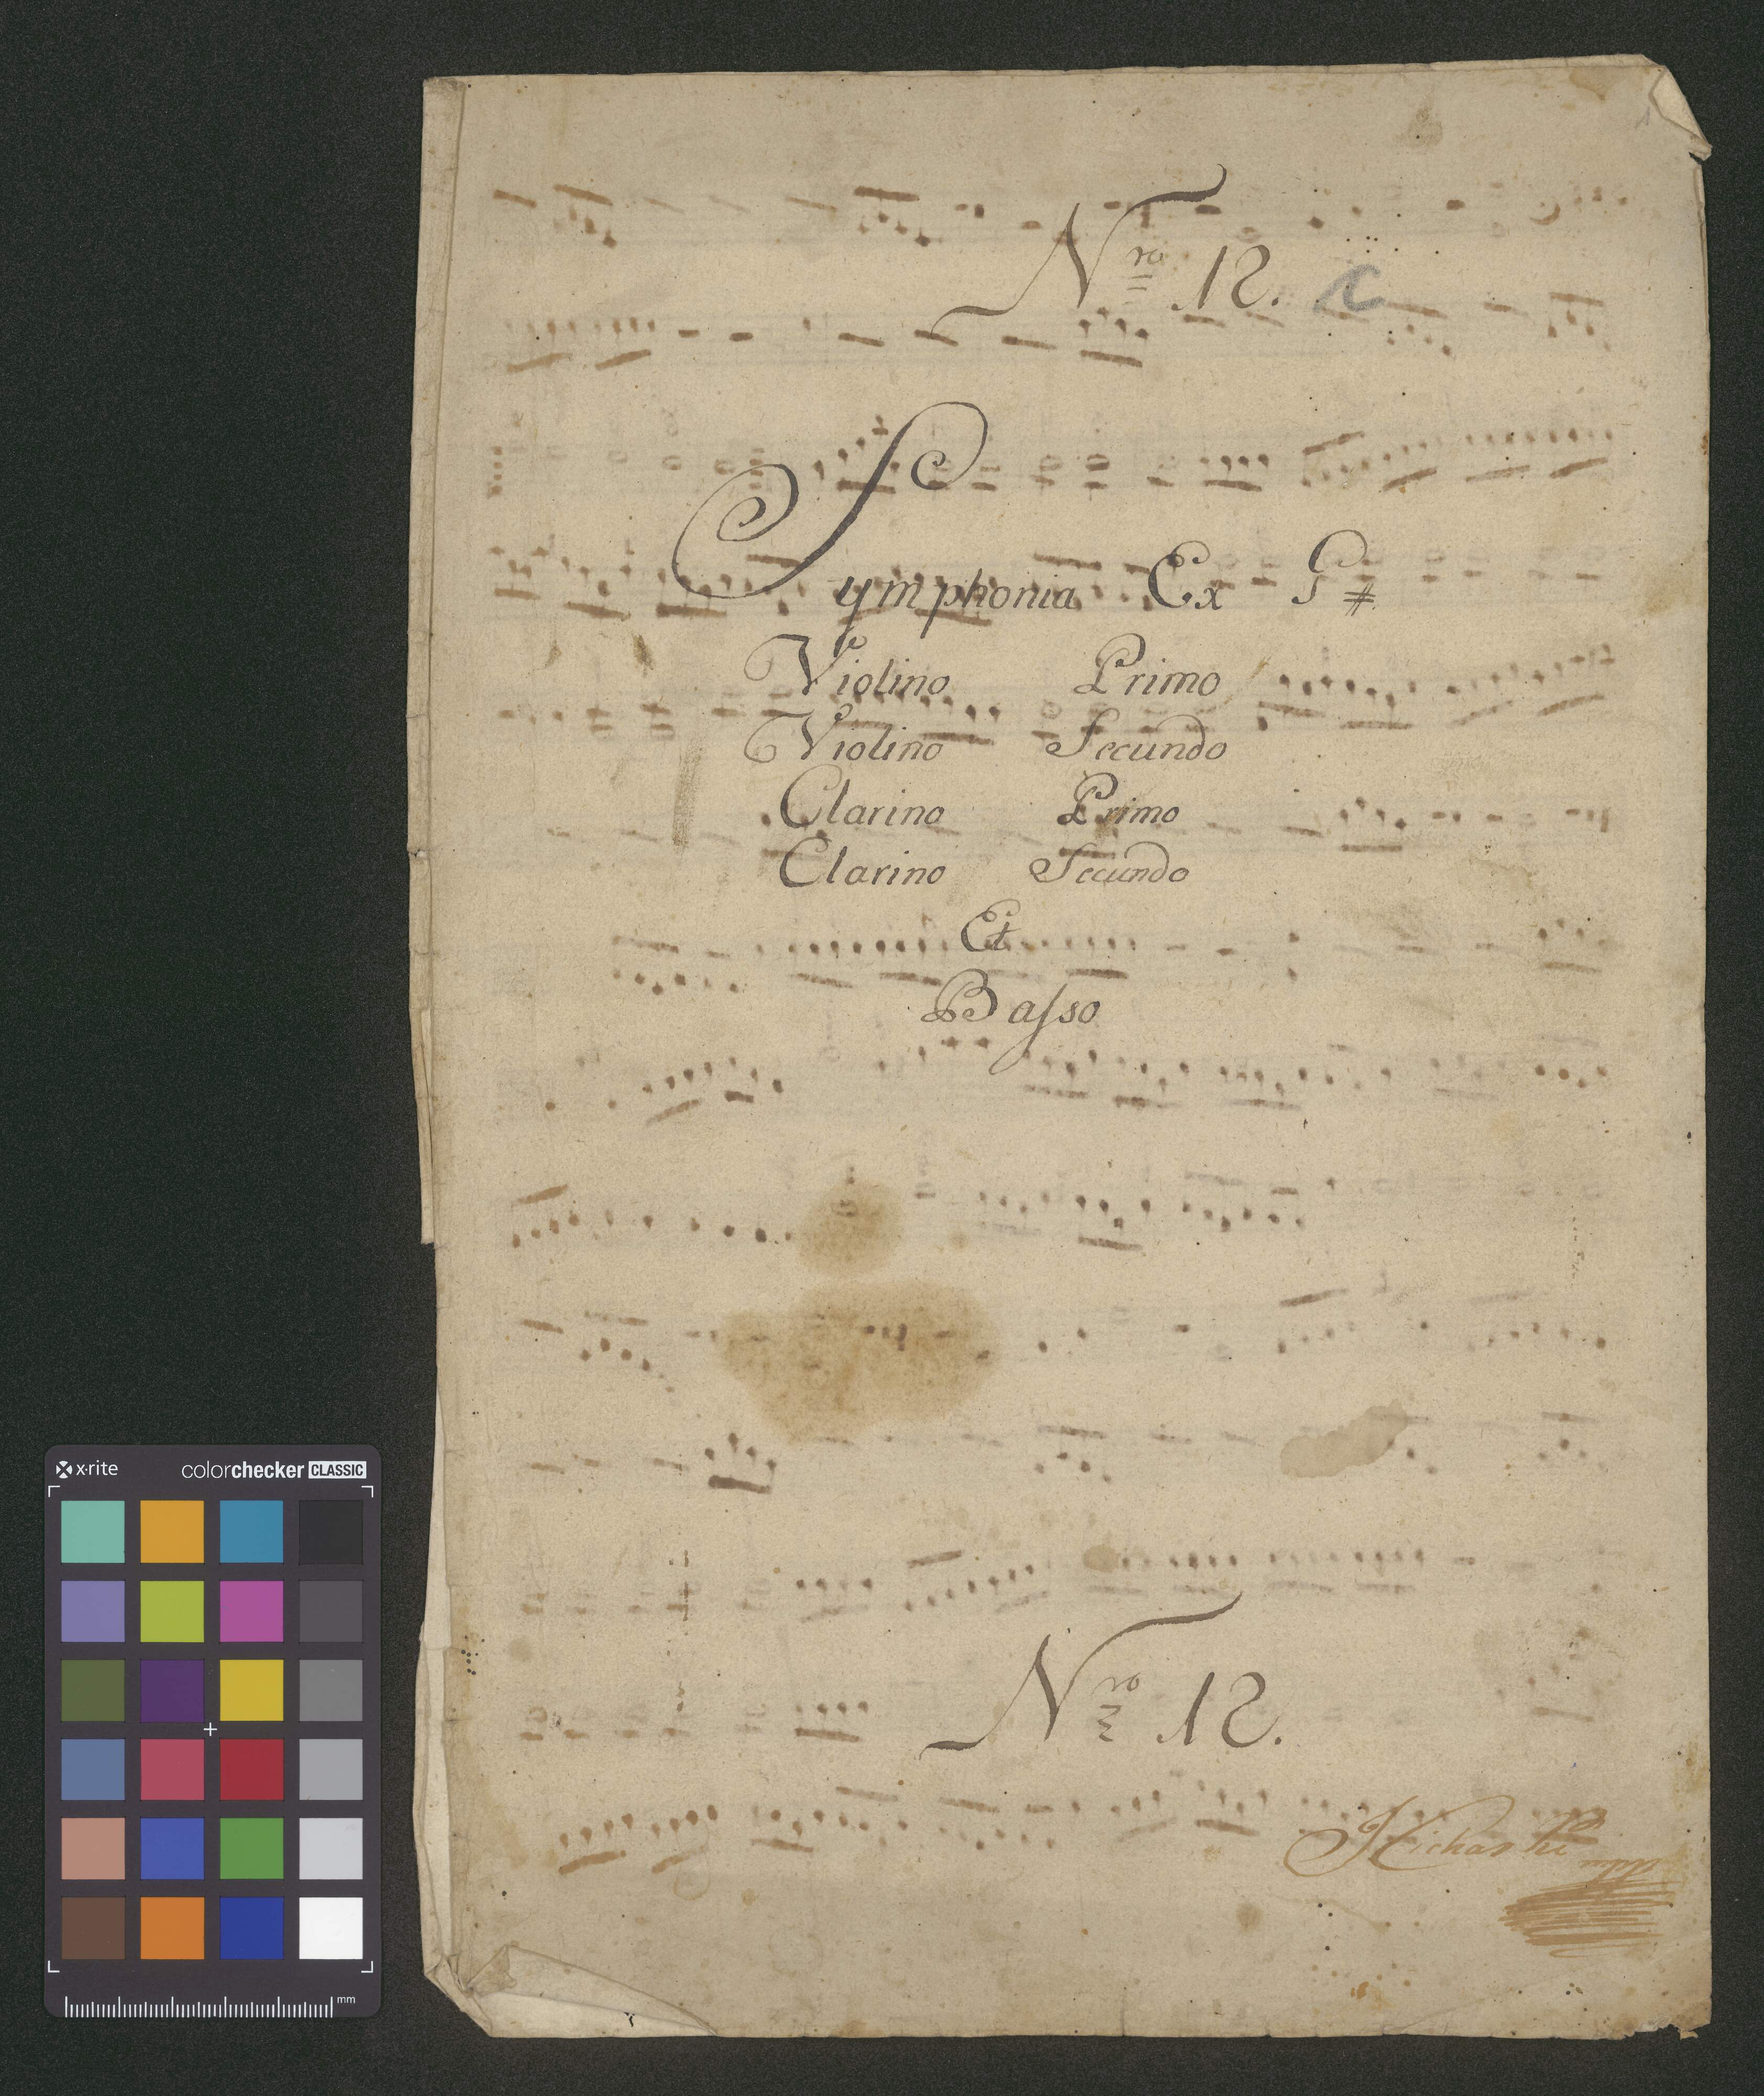 Nro 12.
Symphonia Ex G #
Violino Primo
Violino Secundo
Clarino Primo
Clarino Secundo
Et
Basso
Nro 12.
x·rite colorchecker CLASSIC
mm